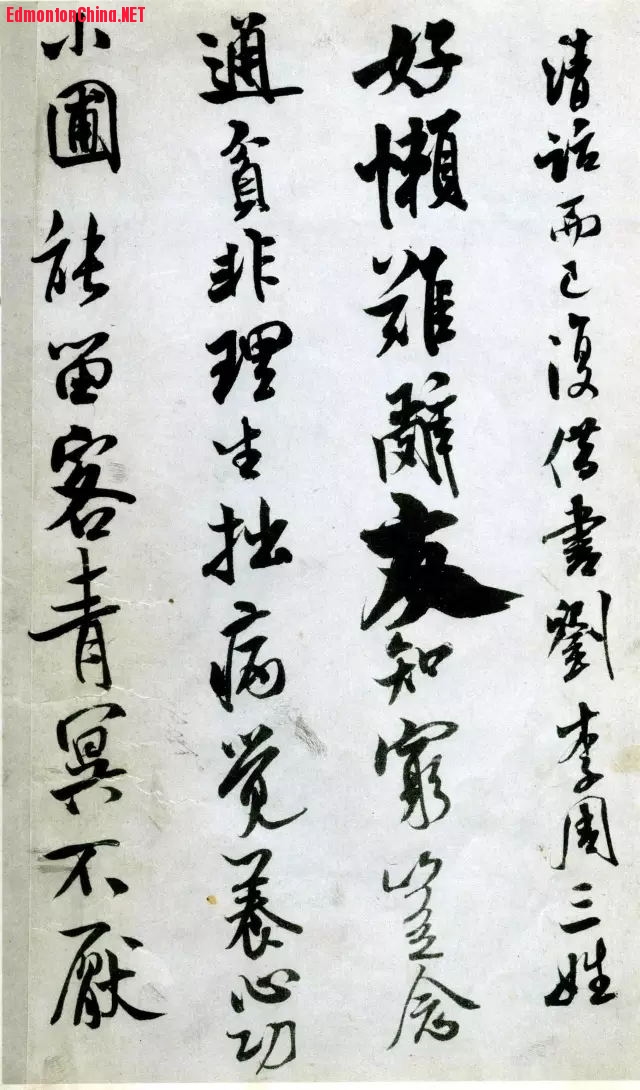 EdmontonChina.NET
清話而已復借書劉李周三姓
好懶難辭友知窮豈念
通貧非理生拙病覺養心功
小圃能留客青冥不厭